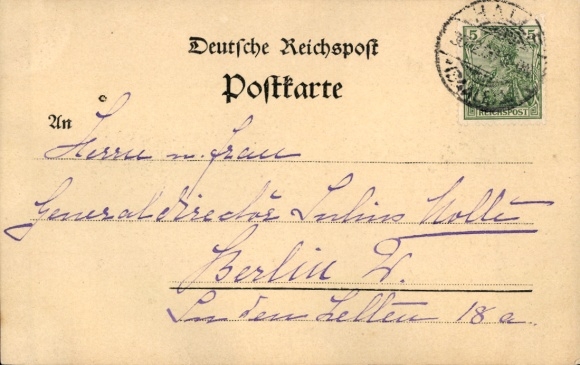 Deutsche Reichspost
Postkarte
An
Herrn u. Frau
Generaldirector Julius Moller
Berlin W.
In den Zelten 18a.
5
REICHSPOST
HALLE